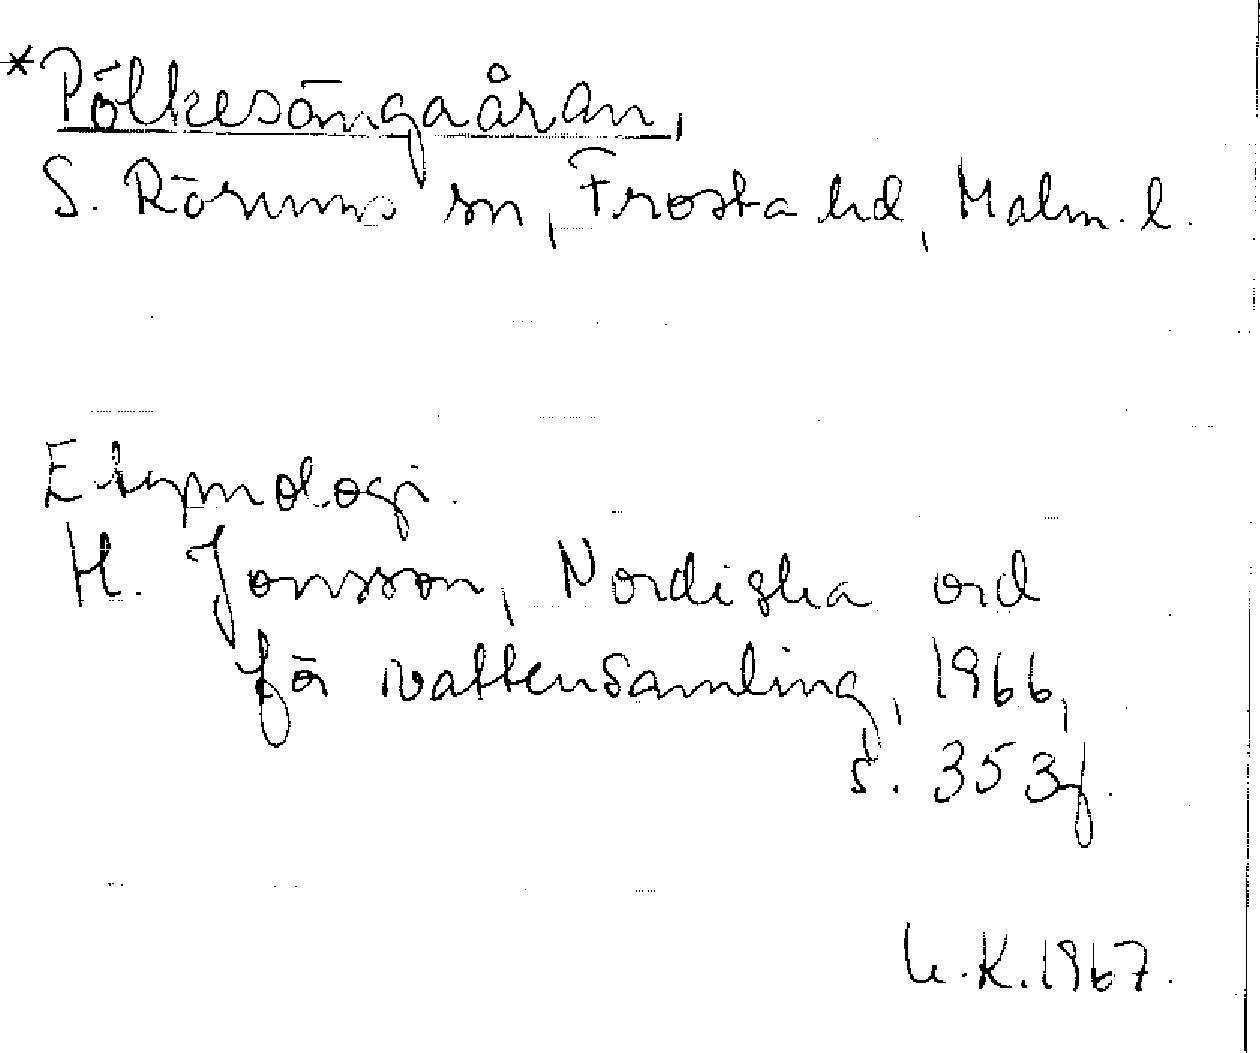 *Pölkesängaåran,
S. Rörums sn, Frosta hd, Malm. l.
Etymologi.
H. Jonsson, Nordiska ord
för vattensamling, 1966,
s. 353f.
U.K. 1967.